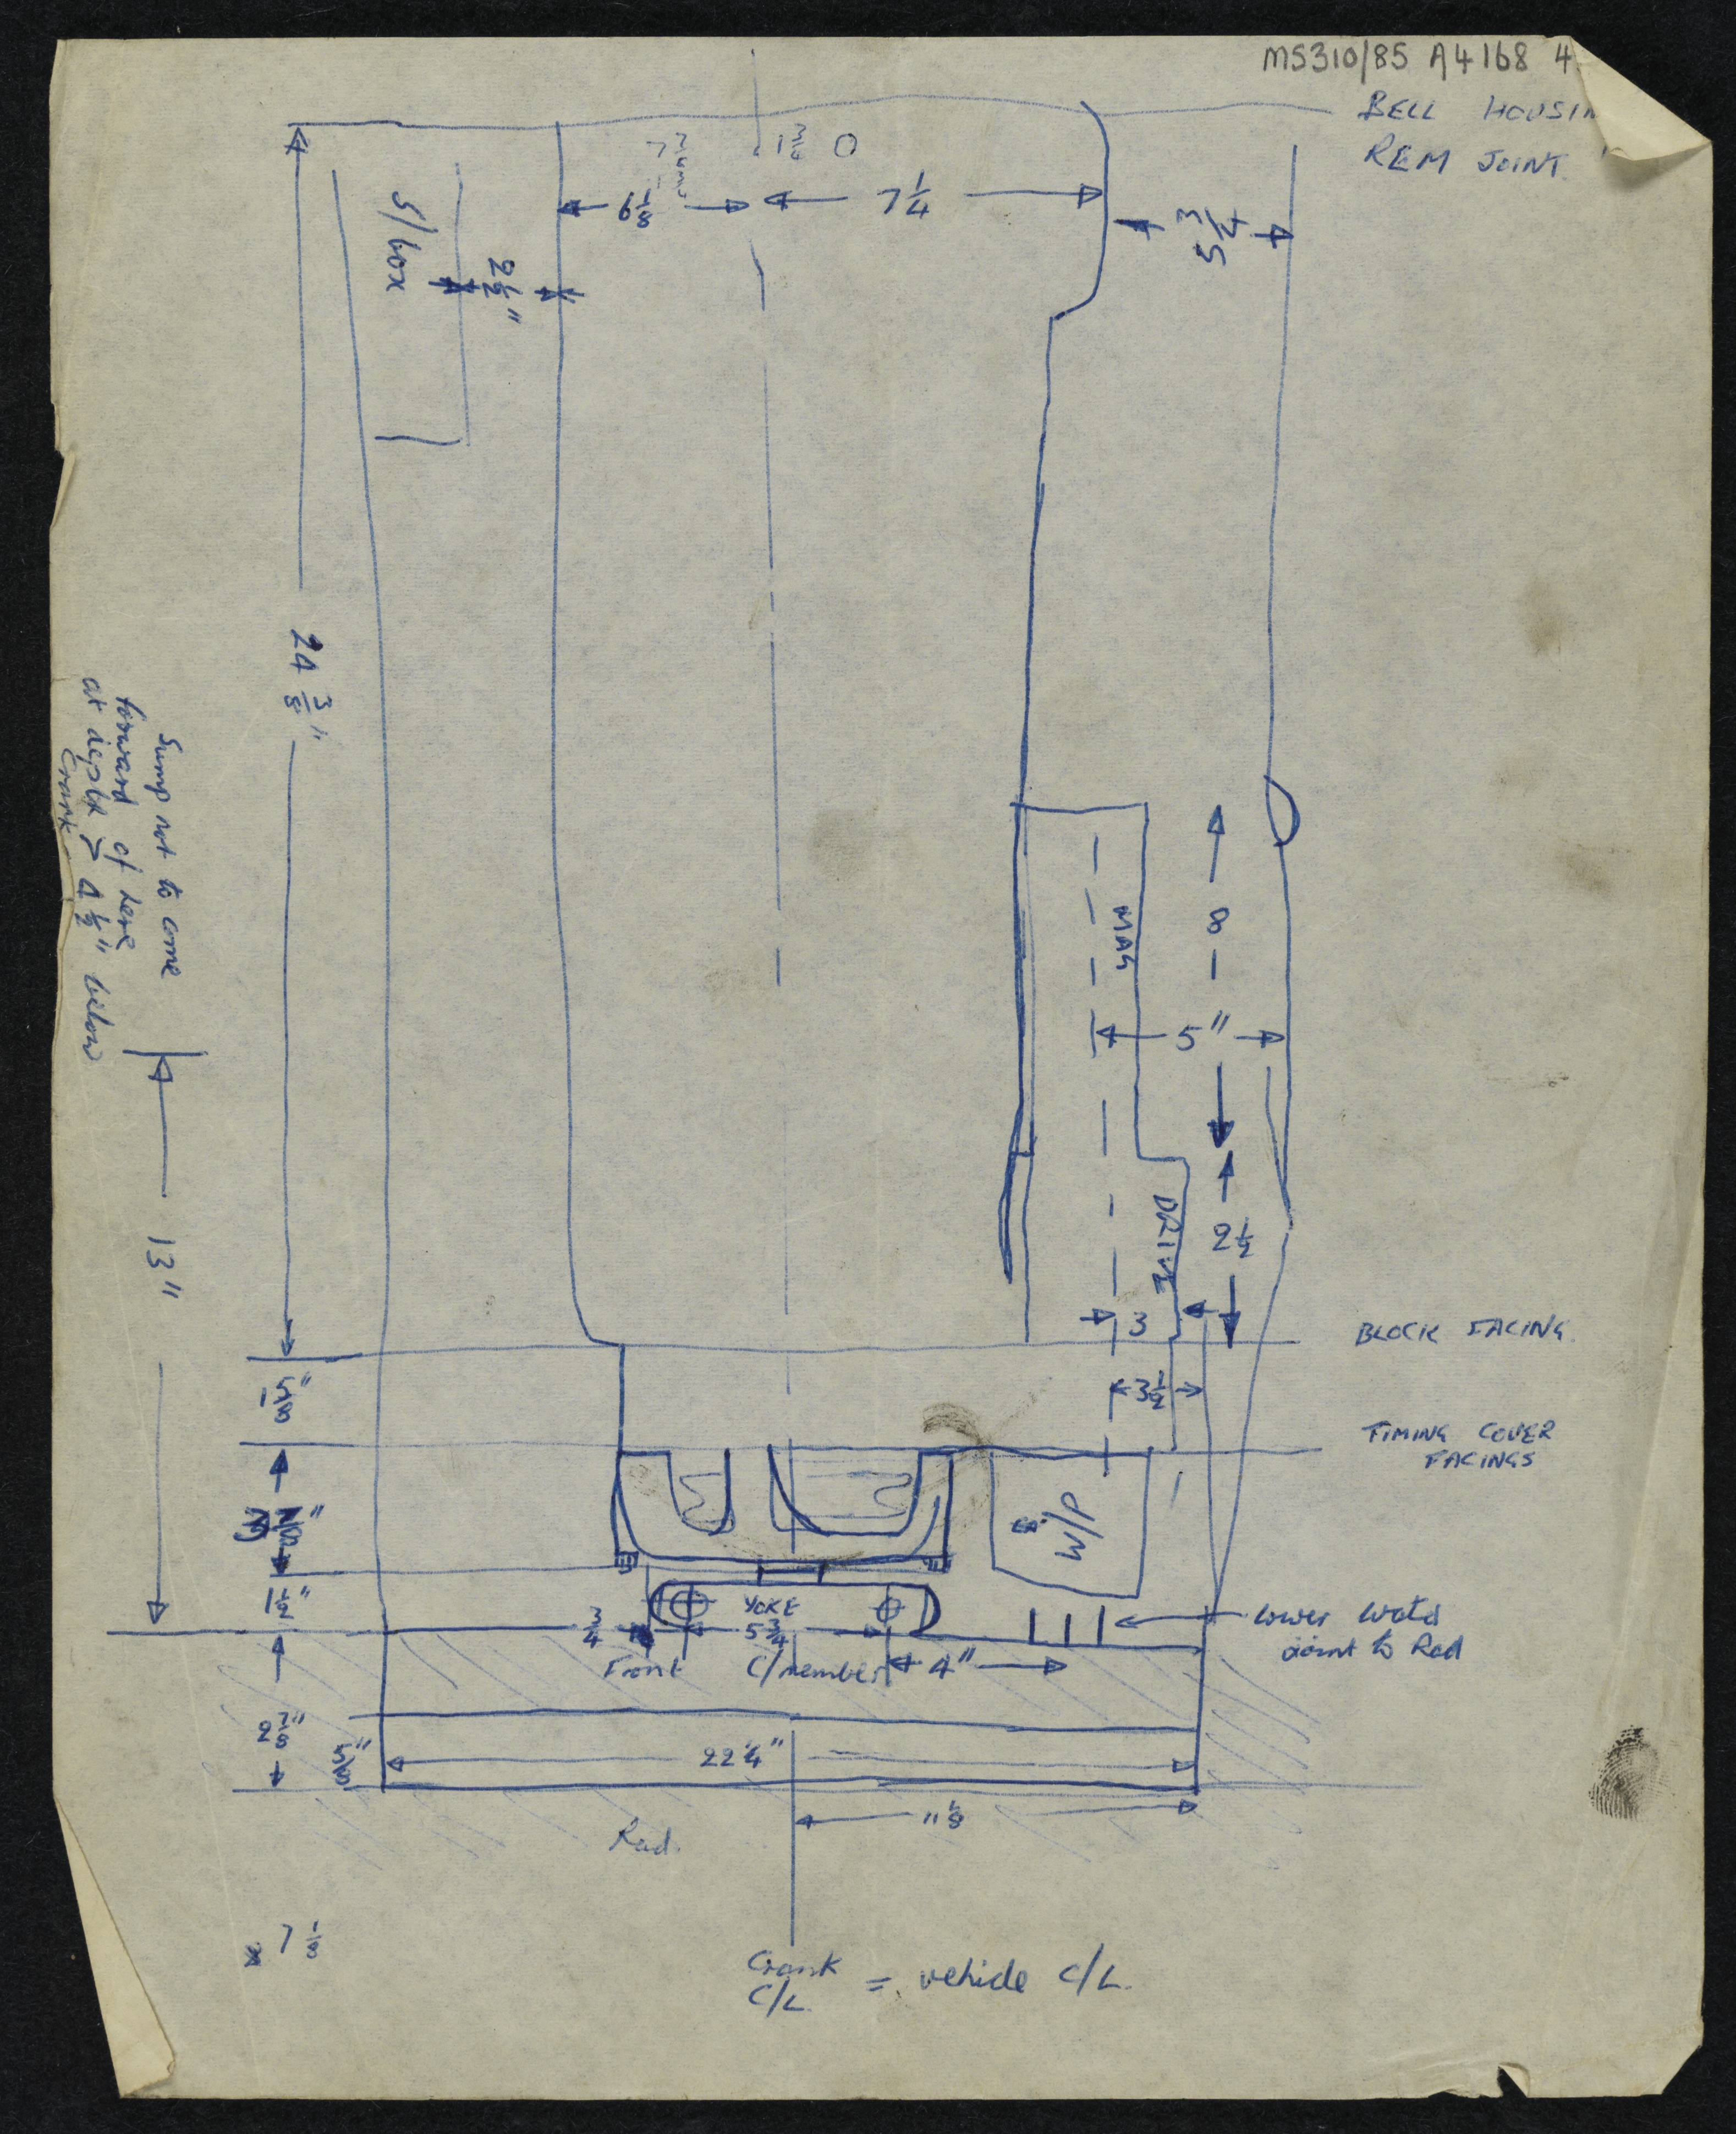 MS310/85 A4168 4
BELL HOUSIN
REM JOINT
1 3/4 O
6 1/8
7 1/4
5 3/4
S/box
2 1/2"
24 3/8"
Sump not to come
forward of here
at depth > 4 1/2" below
Crank
13"
MAG
8
5"
DRIVE
2 1/2
3
BLOCK FACING
1 5/8"
3 1/2
TIMING COVER
FACINGS
W/P
1 1/2"
YOKE
3/4
5 3/4
Front C/member
4"
lower water
joint to Rad
2 7/8"
5/8"
22 1/4"
11 1/8
Rad.
7 1/8
Crank
C/L = vehicle C/L.